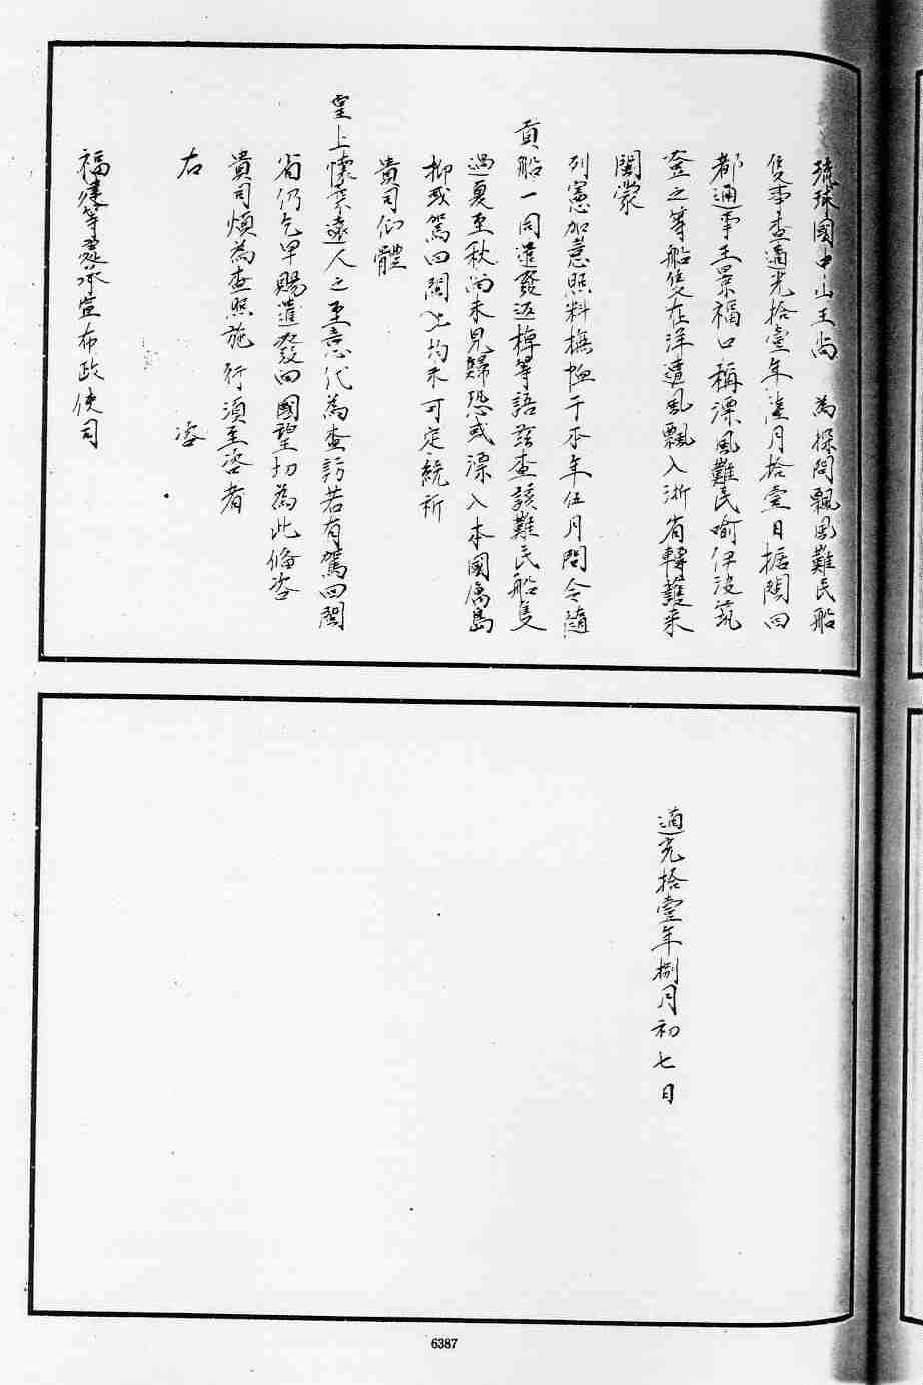 琉球國中山王尚　為探問飄風難民船
隻事查道光拾壹年柒月拾壹日据閩回
都通事王景福口稱漂風難民喻伊沒筑
登之等船隻在洋遭風飄入浙省轉護來
閩蒙
列憲加意照料撫恤于本年伍月間令隨
貢船一同遣發返棹等語該查該難民船隻
過夏至秋尚未見歸恐或漂入本國屬島
抑或駕回閩地均未可定統祈
貴司仰體
皇上懷柔遠人之至意代為查訪若有駕回閩
省仍乞早賜遣發回國望切為此備咨
貴司煩為查照施行須至咨者
右　咨
福建等處承宣布政使司
道光拾壹年捌月初七日
6387